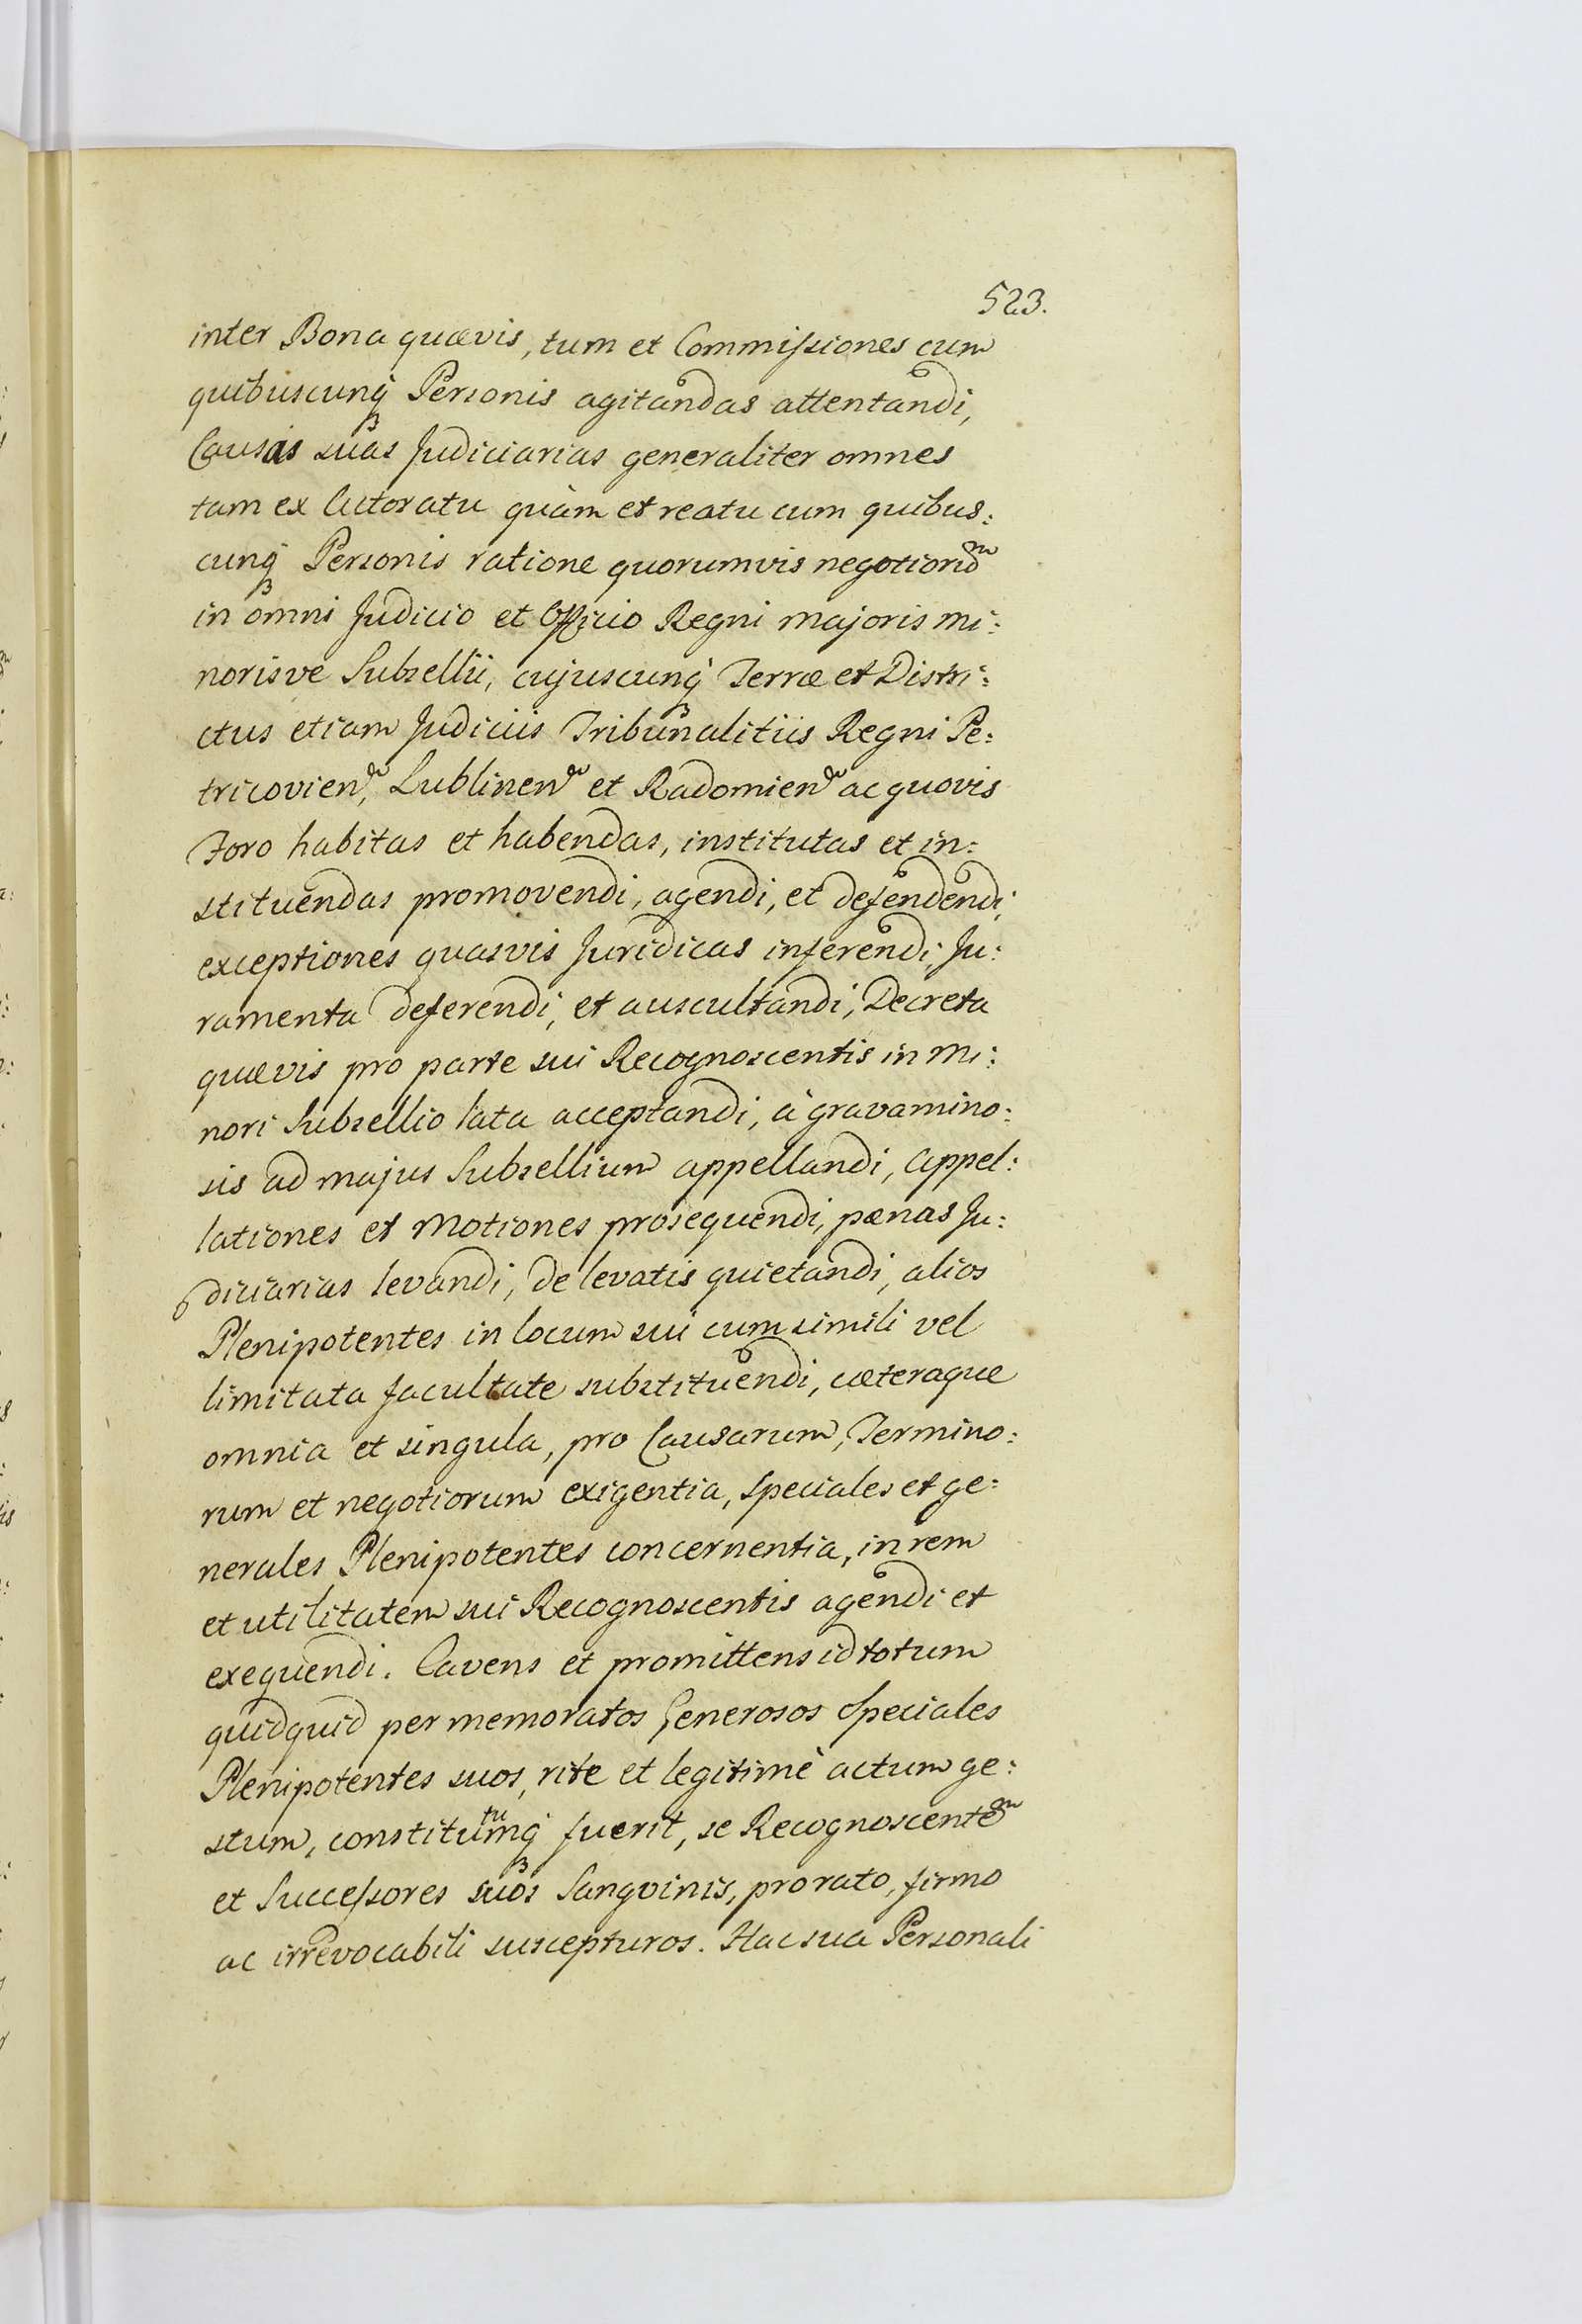 523.
inter Bona quævis, tum et Commissiones cum
quibuscunq3 Personis agitandas attentandi,
Causas suas Judiciarias generaliter omnes
tam ex Actoratu quàm et reatu cum quibus:
cunq3 Personis ratione quorumvis negotiorum
in omni Judicio et Officio Regni majoris mi:
norisve Subsellii, cujuscunq3 Terræ et Distri:
ctus etiam Judiciis Tribunalitiis Regni Pe:
tricovien, Lublinen et Radomien ac quovis
Foro habitas et habendas, institutas et in:
stituendas promovendi, agendi, et defendendi,
exceptiones quasvis Juridicas inferendi, Ju:
ramenta deferendi, et auscultandi, Decreta
quævis pro parte sui Recognoscentis in mi:
nori Subsellio lata acceptandi, à gravamino:
sis ad majus Subsellium appellandi, Appel:
lationes et Motiones prosequendi, pænas Ju:
diciarias levandi, de levatis quietandi, alios
Plenipotentes in locum sui cum simili vel
limitata facultate substituendi, cæteraque
omnia et singula, pro Causarum, Termino:
rum et negotiorum exigentia, speciales et ge:
nerales Plenipotentes concernentia, in rem
et utilitatem sui Recognoscentis agendi et
exequendi. Cavens et promittens id totum
quidquid per memoratos Generosos Speciales
Plenipotentes suos, rite et legitimè actum ge:
stum, constitutumq3 fuerit, se Recognoscentem
et Successores suos Sangvinis, pro rato, firmo
ac irrevocabili suscepturos. Hac sua Personali